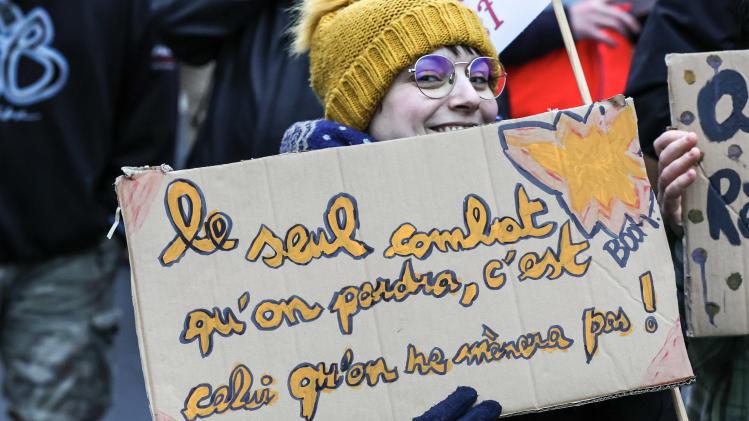 le seul combat
qu'on perdra, c'est
celui qu'on ne mènera pas !
BOUM